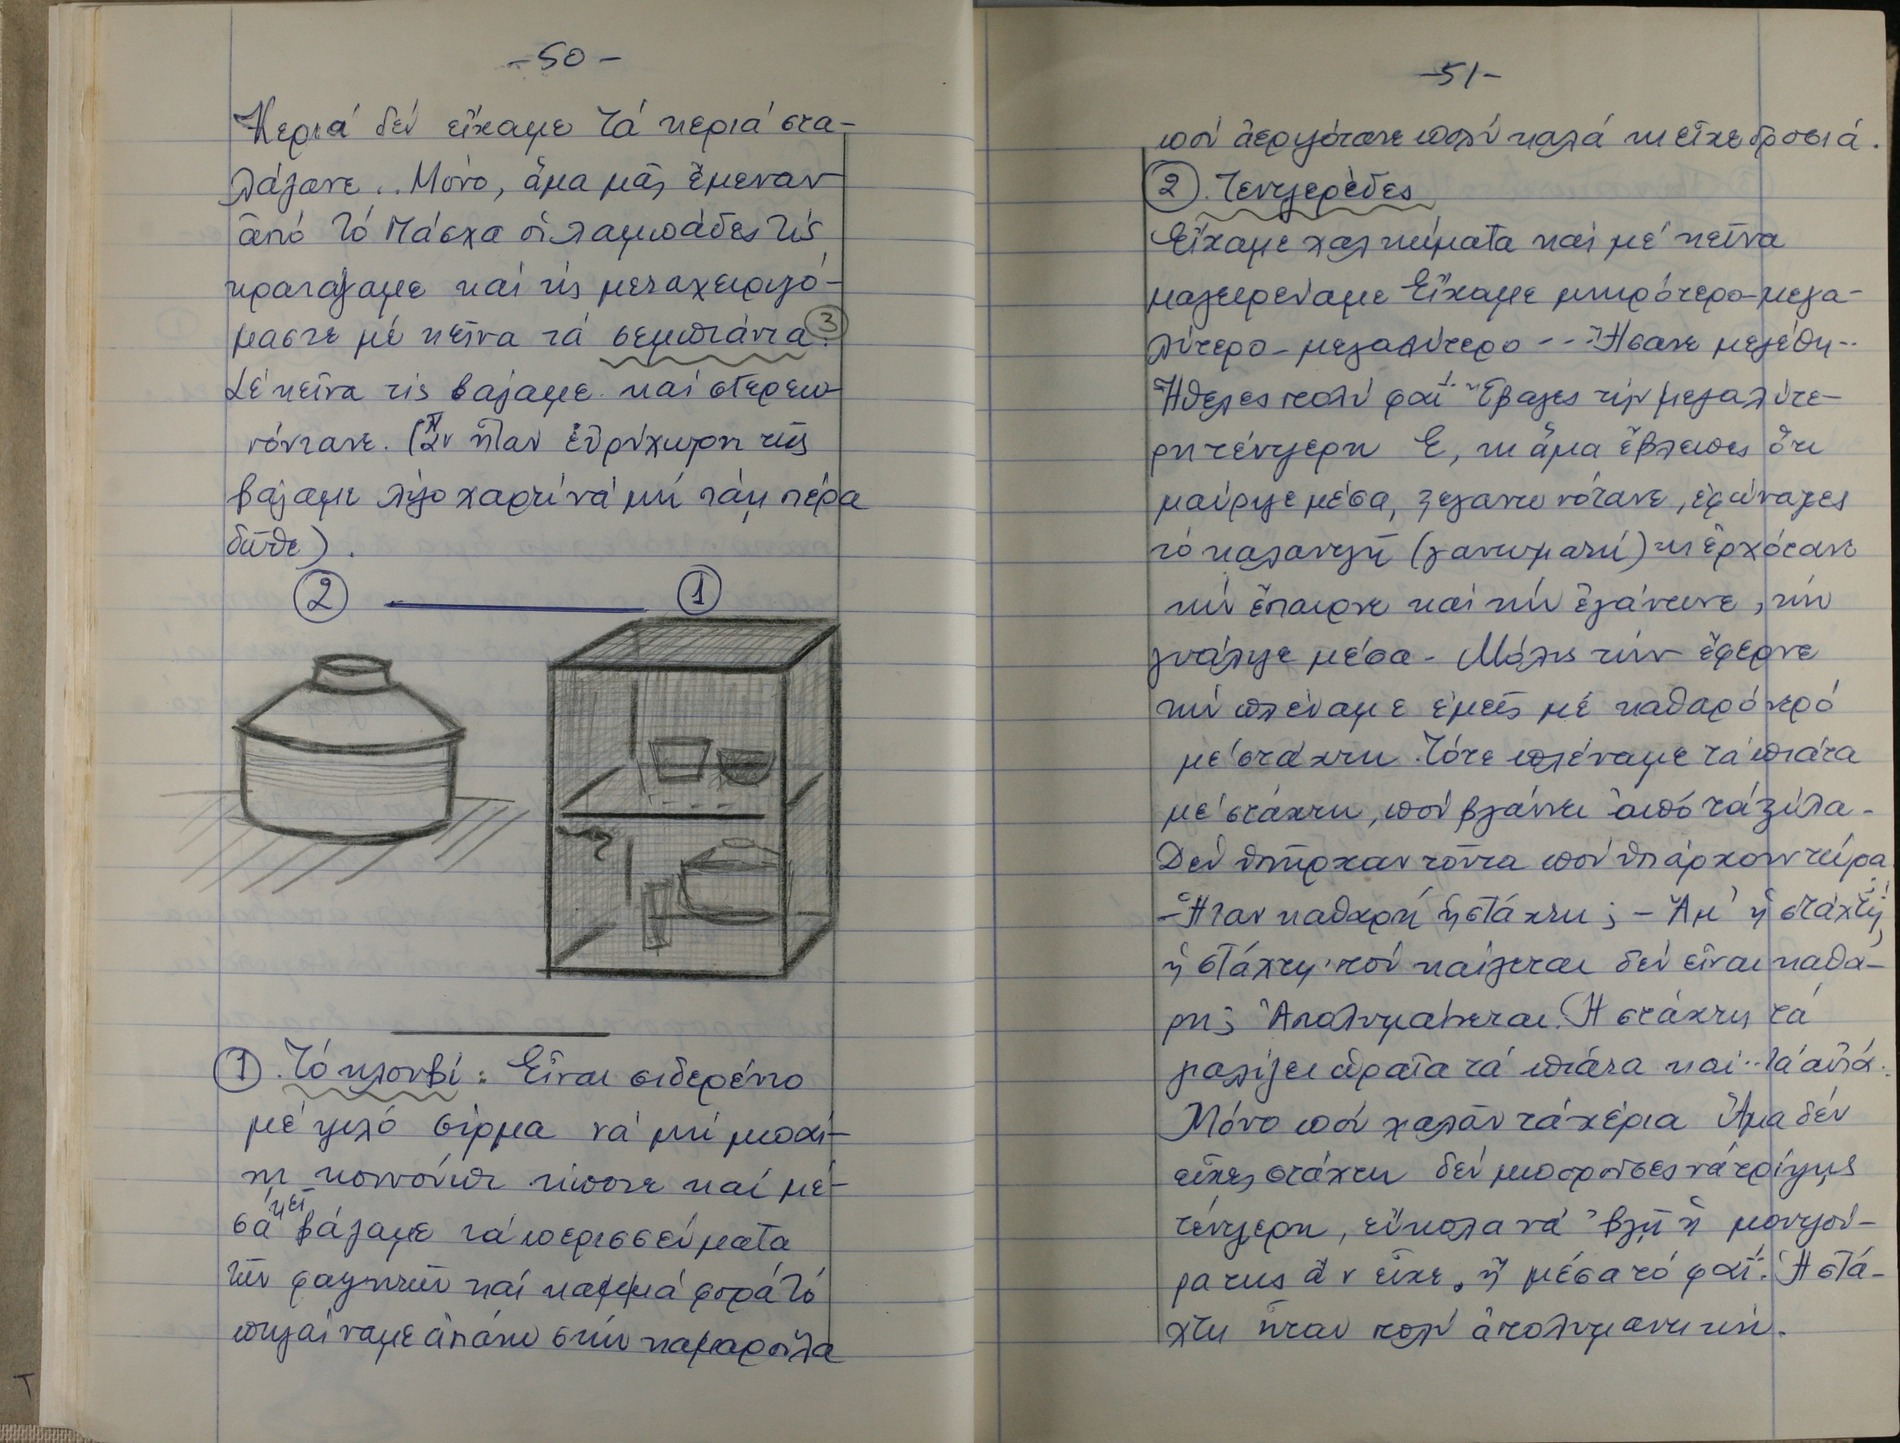 -50-
Κεριά δέν εἴχαμε τά κεριά στα-
λάζανε.. Μόνο, ἅμα μᾶς ἔμεναν
ἀπό τό Πάσχα οἱ λαμπάδες τίς
κρατάγαμε καί τίς μεταχειριζό-
μαστε μέ κεῖνα τά σεμπτάνια. ③
Σέ κεῖνα τίς βάζαμε καί στερεω-
νόντανε. (Ἄν ἦταν εὐρύχωρη τῆς
βάζαμε λίγο χαρτί νά μή πάῃ πέρα
δῶθε).
② ①
① Τό κλουβί: Εἶναι σιδερένιο
μέ ψιλό σύρμα νά μή μπαί-
νῃ κουνούπι τίποτε καί μέ-
σα κεῖ βάζαμε τά περισσεύματα
τῶν φαγητῶν καί καμμιά φορά τό
πηγαίναμε ἀπάνω στήν καμαρούλα
-51-
πού ἀεριζότανε πολύ καλά κι εἶχε δροσιά.
② Τεντζερέδες
Εἴχαμε χαλκώματα καί μέ κεῖνα
μαγειρεύαμε Εἴχαμε μικρότερο-μεγα-
λύτερο-μεγαλύτερο --- Ἤσανε μεγέθη..
Ἤθελες πολύ φαΐ. Ἔβαζες τήν μεγαλύτε-
ρη τέντζερη Ε, κι ἅμα ἔβλεπες ὅτι
μαύριζε μέσα, ξεγανωνότανε, ἐφώναζες
τό καλαντζῆ (γανωματή) κι ἐρχότανε
τήν ἔπαιρνε καί τήν ἐγάνωνε, τήν
γυάλιζε μέσα - Μόλις τήν ἔφερνε
τήν πλέναμε ἐμεῖς μέ καθαρό νερό
μέ στάχτη. Τότε πλέναμε τά πιάτα
μέ στάχτη, πού βγαίνει ἀπό τά ξύλα-
Δέν ὑπῆρχαν τοῦτα πού ὑπάρχουν τώρα
-Ἦταν καθαρή ἡ στάχτη; - Ἀμ' ἡ στάχτη!
ἡ στάχτη πού καίγεται δέν εἶναι καθα-
ρή; Ἀπολυμαίνεται. Ἡ στάχτη τά
γυαλίζει ὡραῖα τά πιάτα καί .. τά αὐτά.
Μόνο πού χαλᾶν τά χέρια Ἅμα δέν
εἶχες στάχτη δέν μποροῦσες νά τρίψῃς
τέντζερη, εὔκολα νά βγῇ ἡ μουτζού-
ρα της ἄν εἶχε, ἤ μέσα τό φαΐ. Ἡ στά-
χτη ἦταν πολύ ἀπολυμαντική.